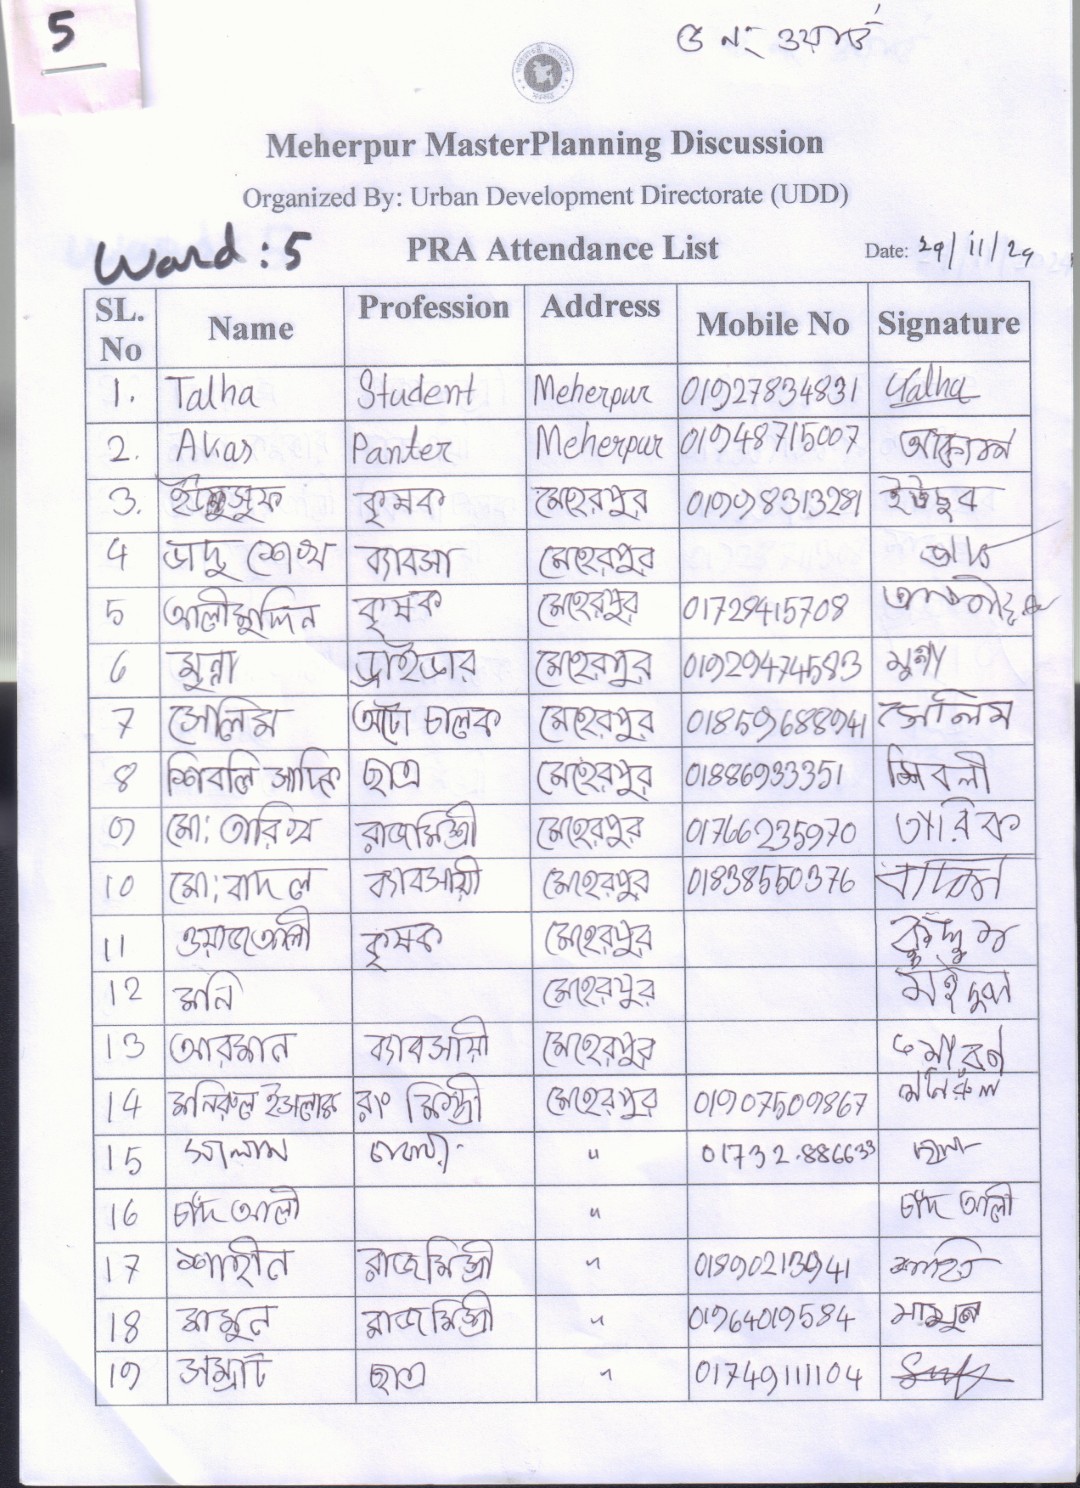 5
৫ নং ওয়ার্ড
Meherpur MasterPlanning Discussion
Organized By: Urban Development Directorate (UDD)
Ward : 5 PRA Attendance List Date: 29/11/29
SL. No Name Profession Address Mobile No Signature
1. Talha Student Meherpur 01927834831 Talha
2. Akas Panter Meherpur 01948715007 আকাশ
3. ইউসুফ কৃষক মেহেরপুর 01998313281 ইউছুব
4 ভাদু শেখ ব্যাবসা মেহেরপুর
5 আলীমুদ্দিন কৃষক মেহেরপুর 01728415708
6 মুন্না ড্রাইভার মেহেরপুর 01929474583 মুন্না
7 সেলিম অটো চালক মেহেরপুর 01859688941 সেলিম
8 শিবলি সাদিক ছাত্র মেহেরপুর 01886933351 শিবলী
9 মো: তারিখ রাজমিস্ত্রী মেহেরপুর 01766235970 তারিক
10 মো: বাদল ব্যাবসায়ী মেহেরপুর 01838550376 বাদল
11 ওয়াজআলী কৃষক মেহেরপুর কুদ্দুস
12 মনি মেহেরপুর মইদুল
13 আরমান ব্যাবসায়ী মেহেরপুর
14 মনিরুল ইসলাম রাং মিস্ত্রী মেহেরপুর 01907509867 মনিরুল
15 সালাম " 01732.886633
16 চাঁদ আলী " চাঁদ আলী
17 শাহীন রাজমিস্ত্রী " 01890213941
18 মামুন রাজমিস্ত্রী " 01964019584 মামুন
19 সম্রাট ছাত্র " 01749111104